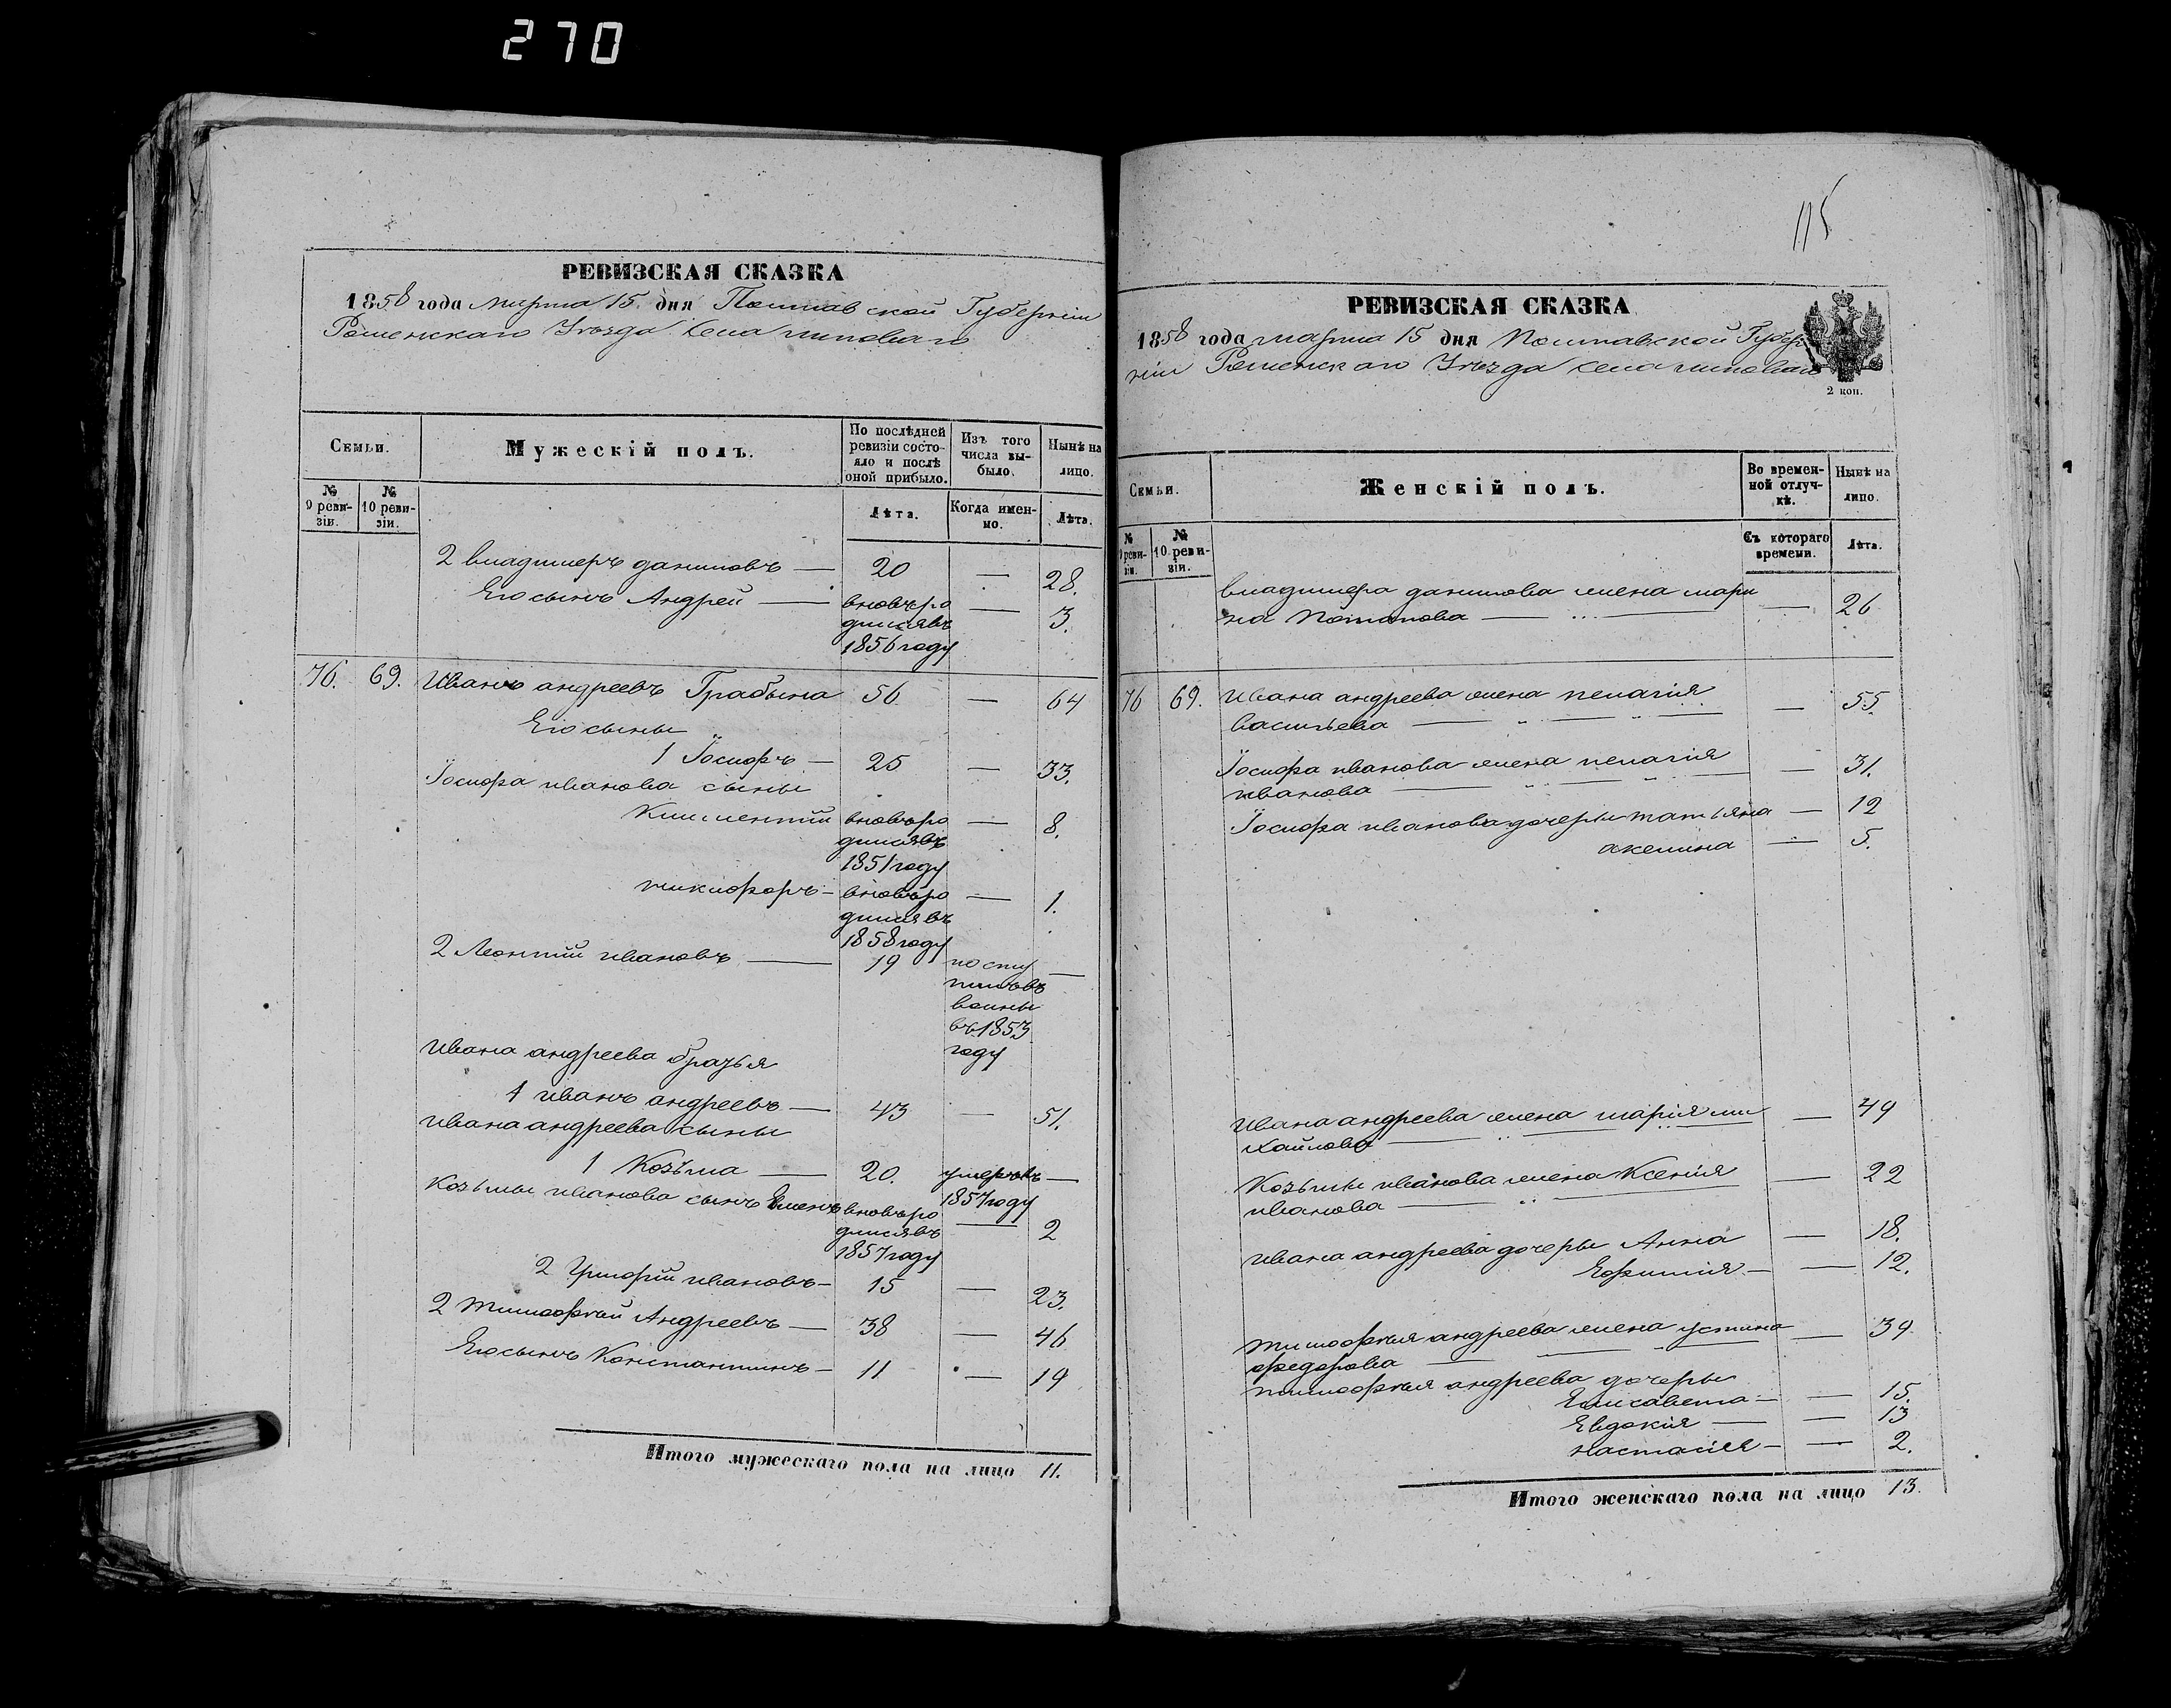 270
РЕВИЗСКАЯ СКАЗКА
1858 года марта 15 дня Полтавской Губерніи
Роменскаго Уѣзда села липоваго
Семьи.
Мужескій полъ.
По послѣдней ревизіи состояло и послѣ оной прибыло.
Изъ того числа выбыло.
Нынѣ на лицо.
№ 9 ревизіи.
№ 10 ревизіи.
Лѣта.
Когда именно.
Лѣта.
2 владимеръ даниловъ — 20 — 28.
Его сынъ Андрей — вновьро — 3.
дилсявъ
1856 году
76. 69. Иванъ андреевъ Грабына 56 — 64
Его сыны
1 Іосифъ — 25 — 33.
Іосифа иванова сыны
Климентій вновьро — 8.
дилсявъ
1851 году
никифоръ — вновьро — 1.
дилсявъ
1858 году
2 Леонтій ивановъ — 19 посту —
пилъвъ
воины
въ 1853
году
Ивана андреева братья
1 иванъ андреевъ — 43 — 51.
ивана андреева сыны
1 Козьма — 20. умеръвъ —
1857 году
Козьмы иванова сынъ вновьро — 2
дилсявъ
1857 году
2 Григорій ивановъ — 15 — 23.
2 Тимофѣй Андреевъ — 38 — 46
Его сынъ Константинъ — 11 — 19
Итого мужескаго пола на лицо 11.
115
РЕВИЗСКАЯ СКАЗКА
1858 года марта 15 дня Полтавской Губер
ніи Роменскаго Уѣзда села липоваго
2 коп.
Семьи.
Женскій полъ.
Во временной отлучкѣ.
Нынѣ на лицо.
№ 9 ревизіи.
№ 10 ревизіи.
Съ котораго времени.
Лѣта.
владимера данилова жена мари
на Потапова — — 26
76 69. Ивана андреева жена пелагія
васильева — — 55.
Іосифа иванова жена пелагія
иванова — — 31.
Іосифа иванова дочери татьяна — 12
акелина — 5.
Ивана андреева жена марія ми
хайлова — — 49
Козьмы иванова жена Ксенія
иванова — — 22
ивана андреева дочери Анна — 18.
Ефимія — — 12.
тимофѣя андреева жена устина
федорова — — 39
тимофѣя андреева дочери
Елисавета — — 15.
Евдокія — — 13
настасія — — 2.
Итого женскаго пола на лицо 13.